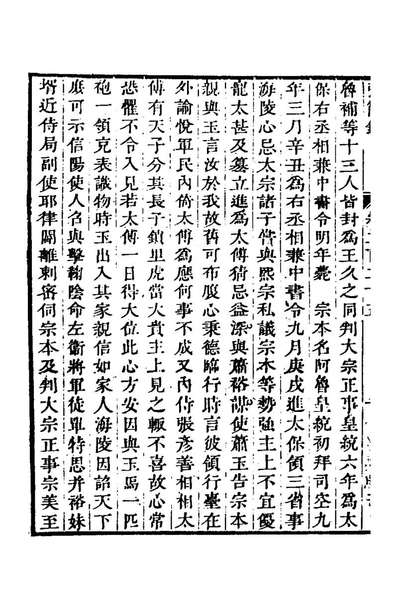 魯補等十三人皆封爲王久之同判大宗正事皇統六年爲太
保右丞相兼中書令明年薨　宗本名阿魯皇統初拜司空九
年三月辛丑爲右丞相兼中書令九月庚戌進太保領三省事
海陵心忌太宗諸子嘗與熙宗私議宗本等勢強主上不宜優
寵太甚及簒立進爲太傅猜忌益深與蕭裕謀使蕭玉告宗本
親與玉言汝於我故舊可布腹心秉德臨行時言彼領行臺在
外諭悅軍民內倚太傅爲應何事不成又內侍張彥善相相太
傅有天子分其長子鎖里虎當大貴主上見之輒不喜故心常
恐懼不令入見若太傅一日得大位此心方安因與玉馬一匹
袍一領充表識物時玉出入其家親信如家人海陵因詔天下
庶可示信陽使人召與擊鞠陰命左衞將軍徒單特思幷裕妹
壻近侍局副使耶律闢離剌密伺宗本及判大宗正事宗美至